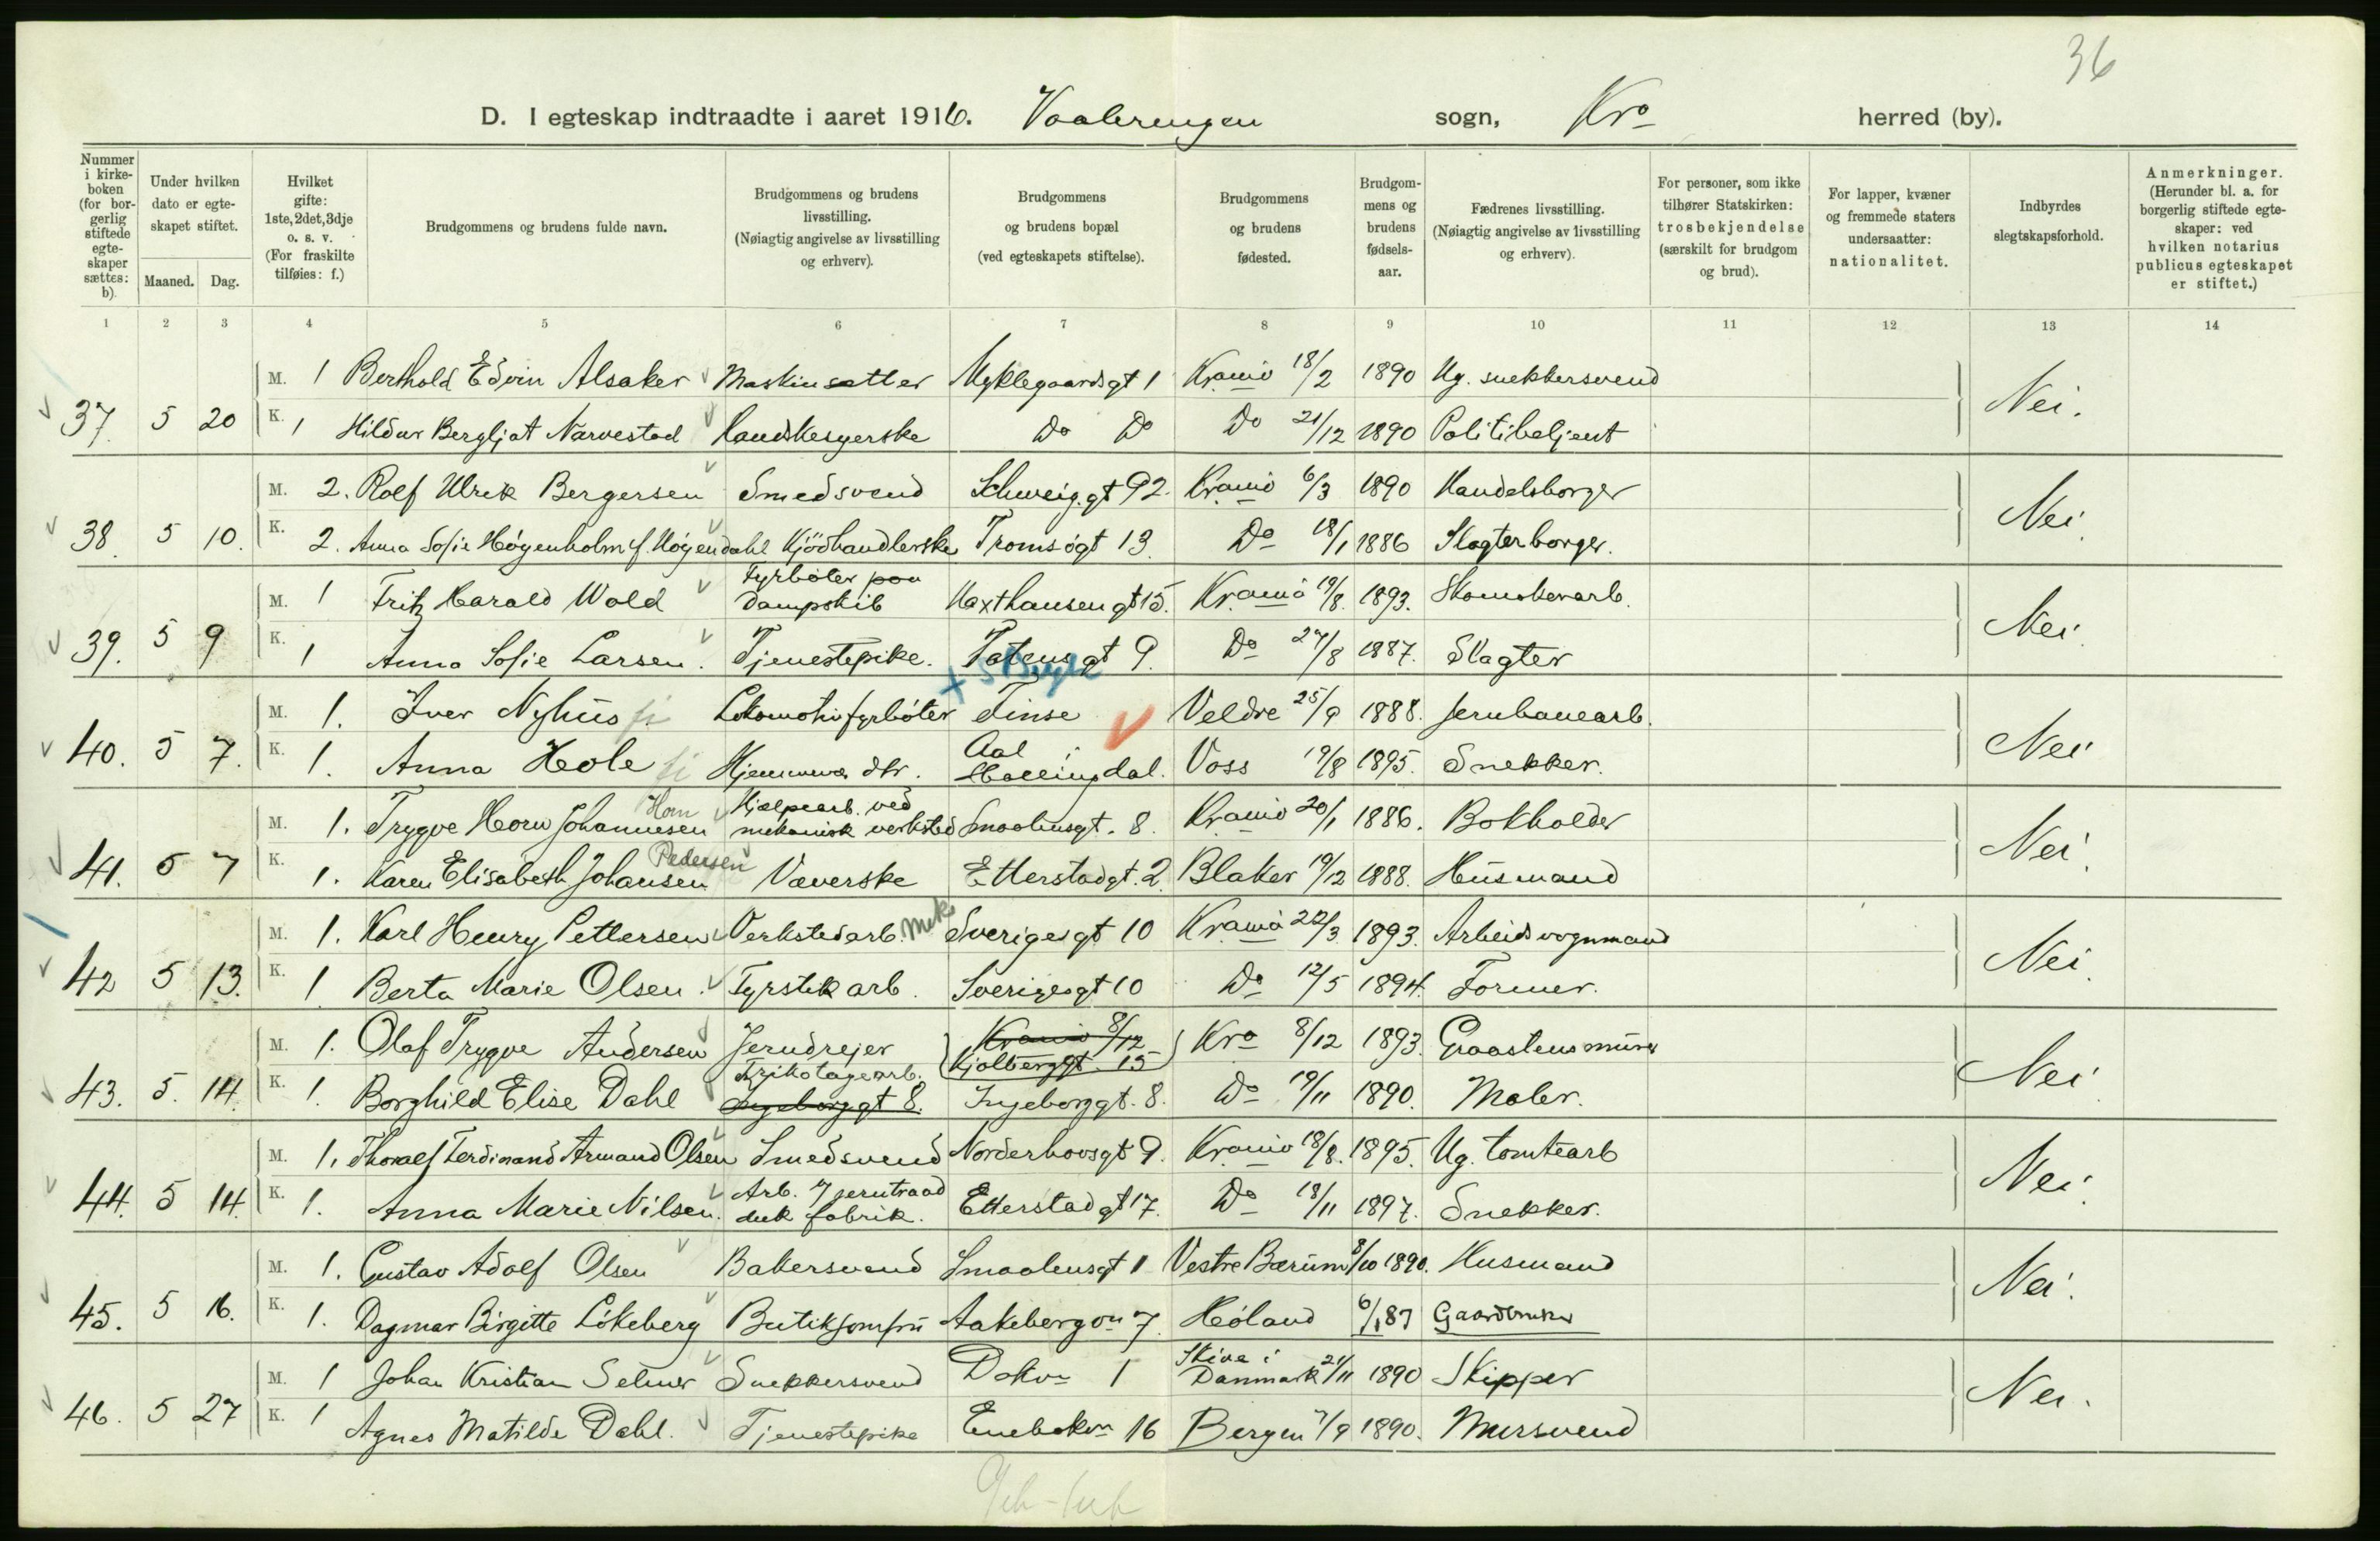 36
D. I egteskap indtraadte i aaret 1916. Vaalerengen sogn, Kra herred (by).
Nummer i kirke-boken (for bor-gerlig stiftede egte-skaper sættes: b).
Under hvilken dato er egte-skapet stiftet.
Maaned. Dag.
Hvilket gifte: 1ste, 2det, 3dje o. s. v. (For fraskilte tilføies: f.)
Brudgommens og brudens fulde navn.
Brudgommens og brudens livsstilling. (Nøiagtig angivelse av livsstilling og erhverv).
Brudgommens og brudens bopæl (ved egteskapets stiftelse).
Brudgommens og brudens fødested.
Brudgom-mens og brudens fødsels-aar.
Fædrenes livsstilling. (Nøiagtig angivelse av livsstilling og erhverv).
For personer, som ikke tilhører Statskirken: trosbekjendelse (særskilt for brudgom og brud).
For lapper, kvæner og fremmede staters undersaatter: nationalitet.
Indbyrdes slegtskapsforhold.
Anmerkninger. (Herunder bl. a. for borgerlig stiftede egte-skaper: ved hvilken notarius publicus egteskapet er stiftet.)
1 2 3 4 5 6 7 8 9 10 11 12 13 14
M. 1 Berthold Edvin Alsaker Maskinsætter Myklegaardsgt 1 Kr.ania 18/2 1890 Ug. snekkersvend
37. 5 20 K. 1 Hildur Bergljot Narvestad Handskesyerske Do Do Do 21/12 1890 Politibetjent Nei.
M. 2. Rolf Ulrik Bergersen Smedsvend Schweig.gt 92. Kr.ania 6/3 1890 Handelsborger
38. 5 10. K. 2. Anna Sofie Høgenholm f. Høgendahl Kjödhandlerske Tromsøgt 13. Do 18/1 1886 Slagterborger. Nei
M. 1 Fritz Harald Wold Fyrbøter paa Dampskib Haxthausengt 15. Kr.ania 19/8. 1893. Skomakerarb.
39. 5 9 K. 1 Anna Sofie Larsen. Tjenestepike. Totensgt 9. Do 27/8 1887. Slagter Nei
M. 1. Iver Nyhus Lokomotivfyrbøter Finse Veldre 25/9 1888. Jernbanearb.
40. 5 7. K. 1. Anna Hole Hjemmev. dtr. Aal i Hallingdal. Voss 19/8 1895. Snekker. Nei
M. 1. Trygve Horn Johannesen Horn Hjælpearb. ved mekanisk verksted Smaalensgt. 8. Kr.ania 20/1 1886. Bokholder
41. 5 7 K. 1. Karen Elisabeth Johansen Pedersen Væverske Etterstadgt. 2. Blaker 19/12 1888. Husmand Nei.
M. 1. Karl Henry Pettersen Verkstedarb. Mek Sverigesgt 10 Kr.ania 22/3 1893. Arbeidsvognmand
42 5 13. K. 1 Berta Marie Olsen. Fyrstikarb. Sverigesgt 10 Do 12/5 1894. Former. Nei.
M. 1. Olaf Trygve Andersen Jerndreier Kr.ania 8/12 Kjølberggt. 15 Kra 8/12 1893. Graastensmurer
43. 5. 14. K. 1. Borghild Elise Dahl Trikotagearb. Ingeborggt 8. Ingeborggt. 8. Do 19/11 1890. Maler. Nei
M. 1. Thoralf Ferdinand Armand Olsen Smedsvend Norderhovsgt 9. Kr.ania 18/8. 1895. Ug. tomtearb
44. 5 14. K. 1. Anna Marie Nilsen. Arb. i jerntraad duk fabrik. Etterstadgt 17. Do 18/11 1897. Snekker. Nei.
M. 1. Gustav Adolf Olsen Bakersvend Smaalensgt 1 Vestre Bærum 8/10 1890. Husmand
45. 5 16. K. 1. Dagmar Birgitte Løkeberg Butikjomfru Aakebergvn 7. Høland 6/1 87 Gaardbruker Nei.
M. 1 Johan Kristian Selmer Snekkersvend Dokvn 1 Skive i Danmark 21/11 1890 Skipper
46. 5 27 K. 1 Agnes Matilde Dahl. Tjenestepike Enebakvn 16 Bergen 7/9 1890. Mursvend Nei.